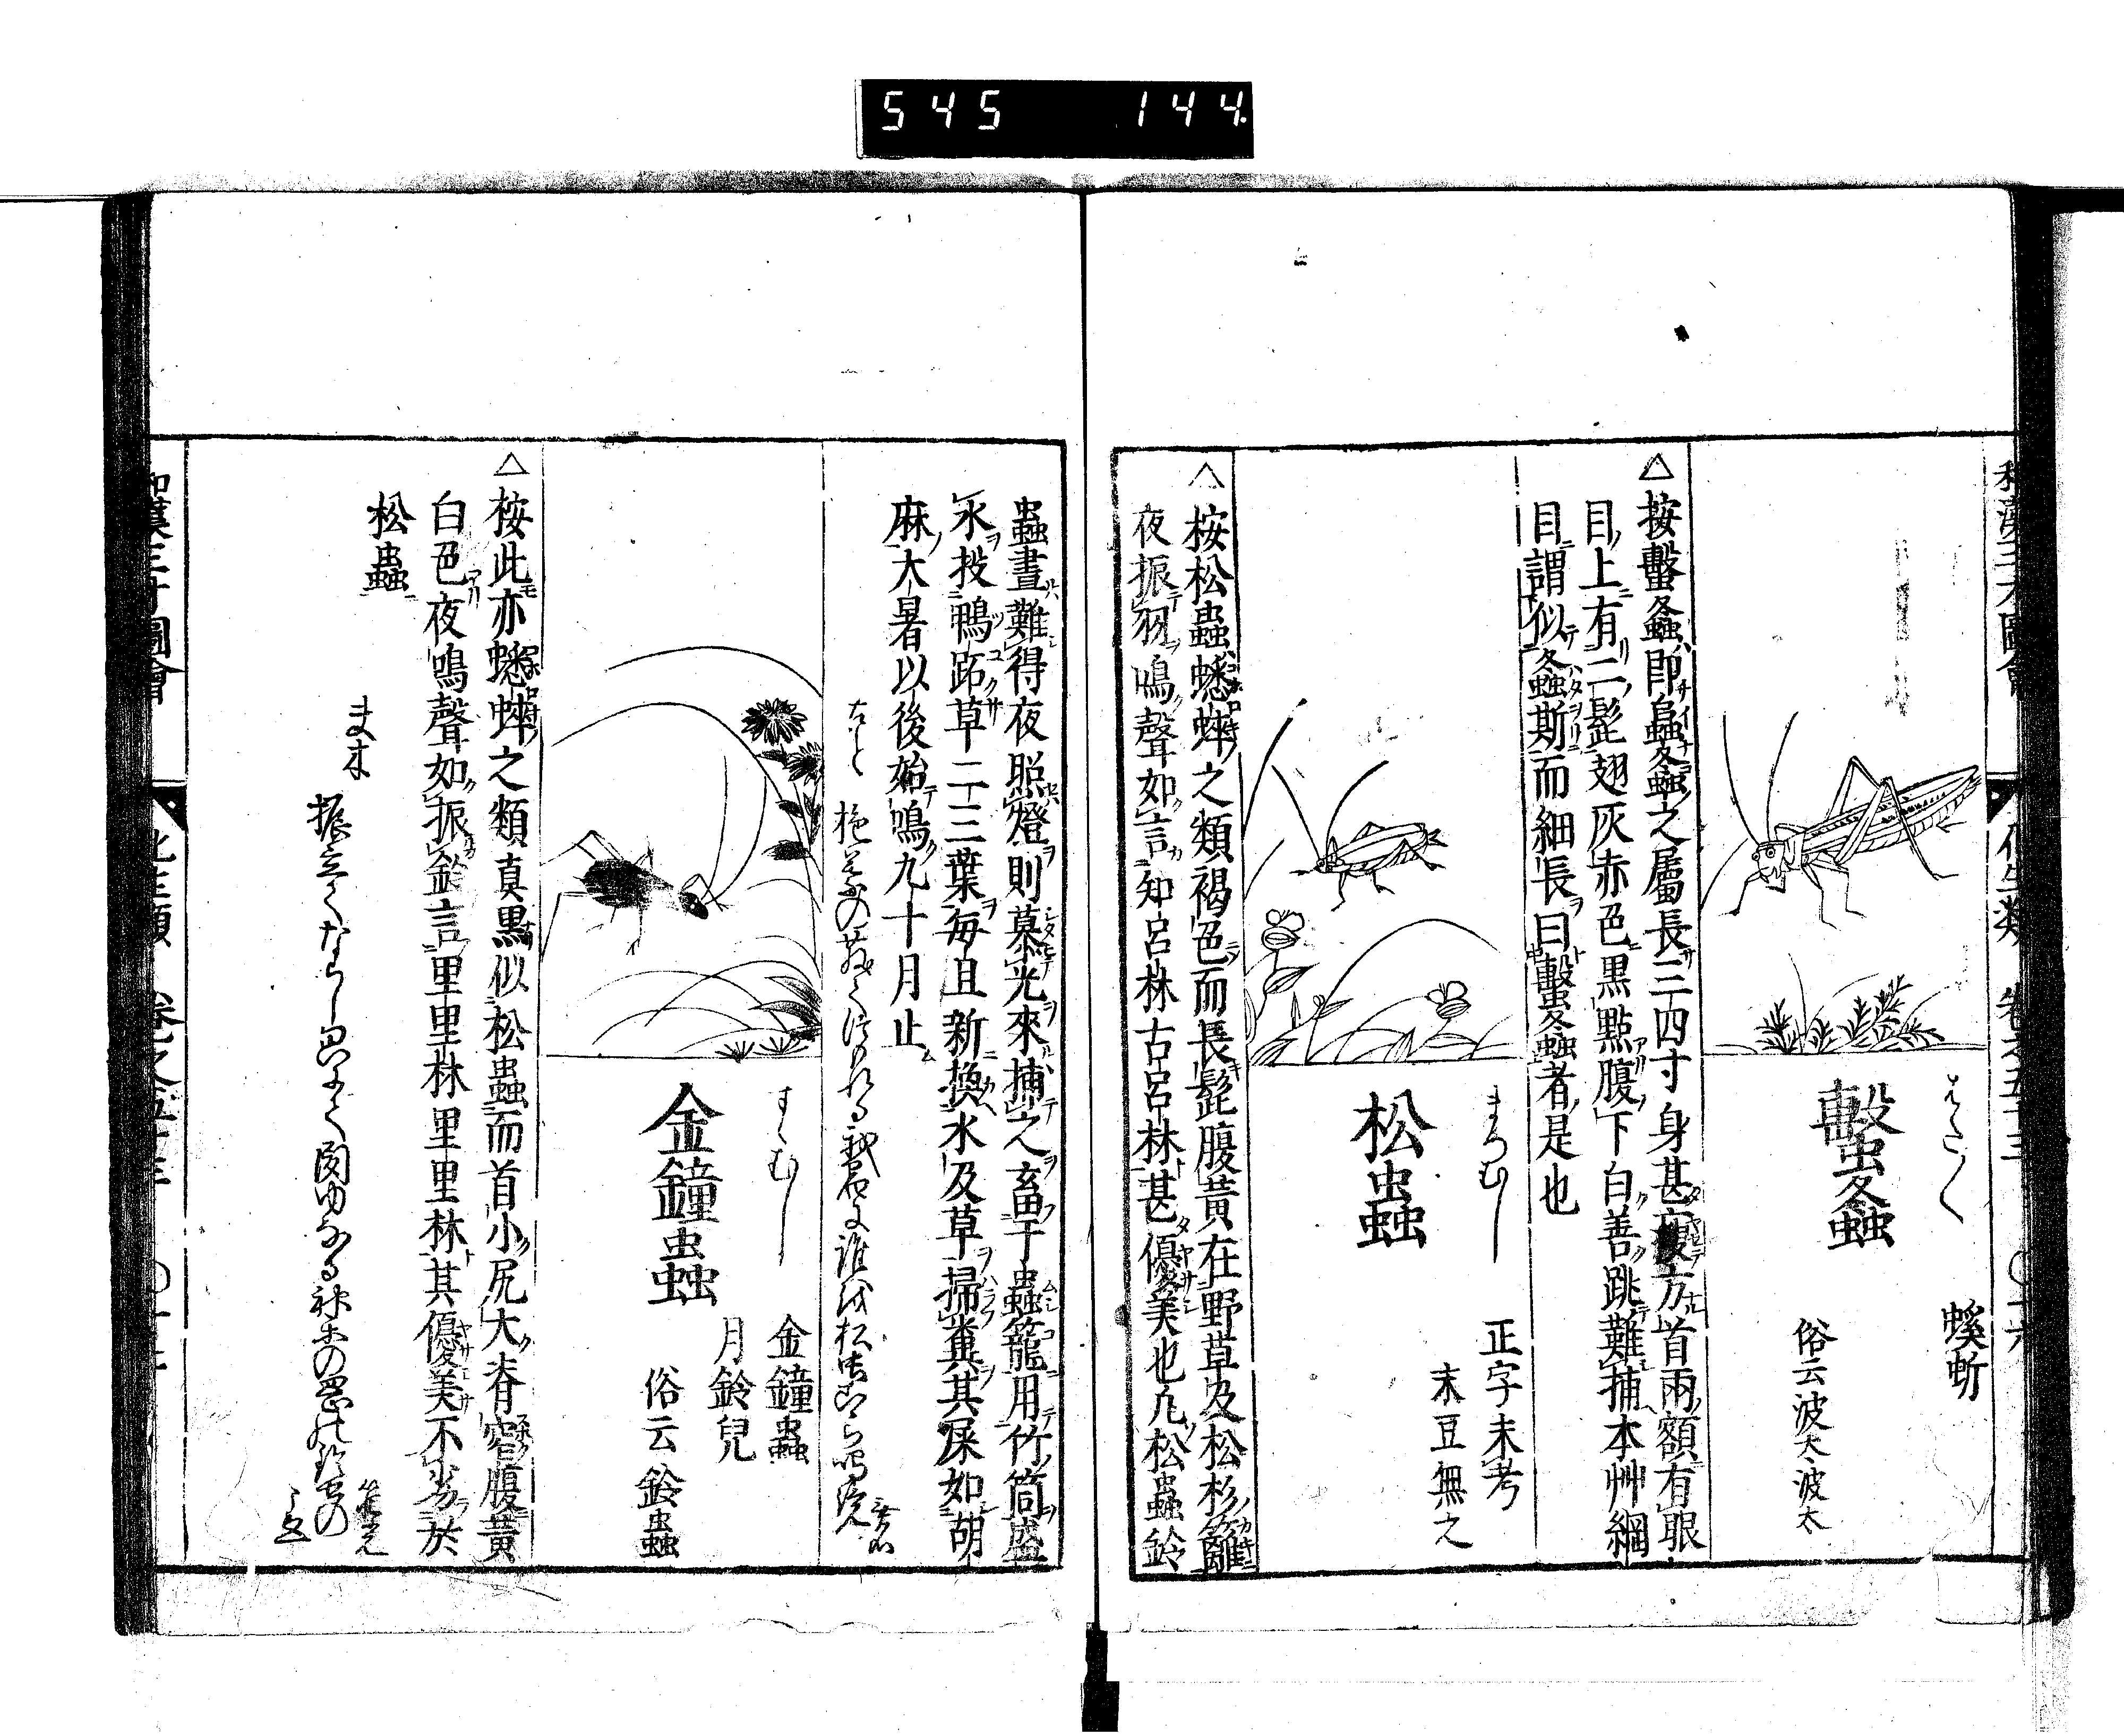 545 144
和漢三才圖會 化生類 卷之五十三 〇十六
はたはた
螇蚸
螿螽
俗云波太波太
△按螿螽即蝗螽之屬長三四寸身甚瘦方首兩額有眼
目上有二髭翅灰赤色黒點腹下白善跳難捕本艸綱
目謂似螽斯而細長曰螿螽者是也
まつむし
松蟲
正字未考
末豆無之
△按松蟲蟋蟀之類褐色而長髭腹黃在野草及松杉籬
夜振羽鳴聲如言知呂林古呂林甚優美也凢松蟲鈴
蟲晝難得夜照燈則慕光來捕之畜于蟲籠用竹筒盛
水投鴨跖草二三葉每旦新換水及草掃糞其屎如胡
麻大暑以後始鳴九十月止
すゝむし
金鐘蟲
金鐘蟲
月鈴兒
俗云鈴蟲
△按此亦蟋蟀之類真黒似松蟲而首小尻大脊窄腹黃
白色夜鳴聲如振鈴言里里林里里林其優美不劣於
松蟲
和漢三才圖會 化生類 卷之五十三